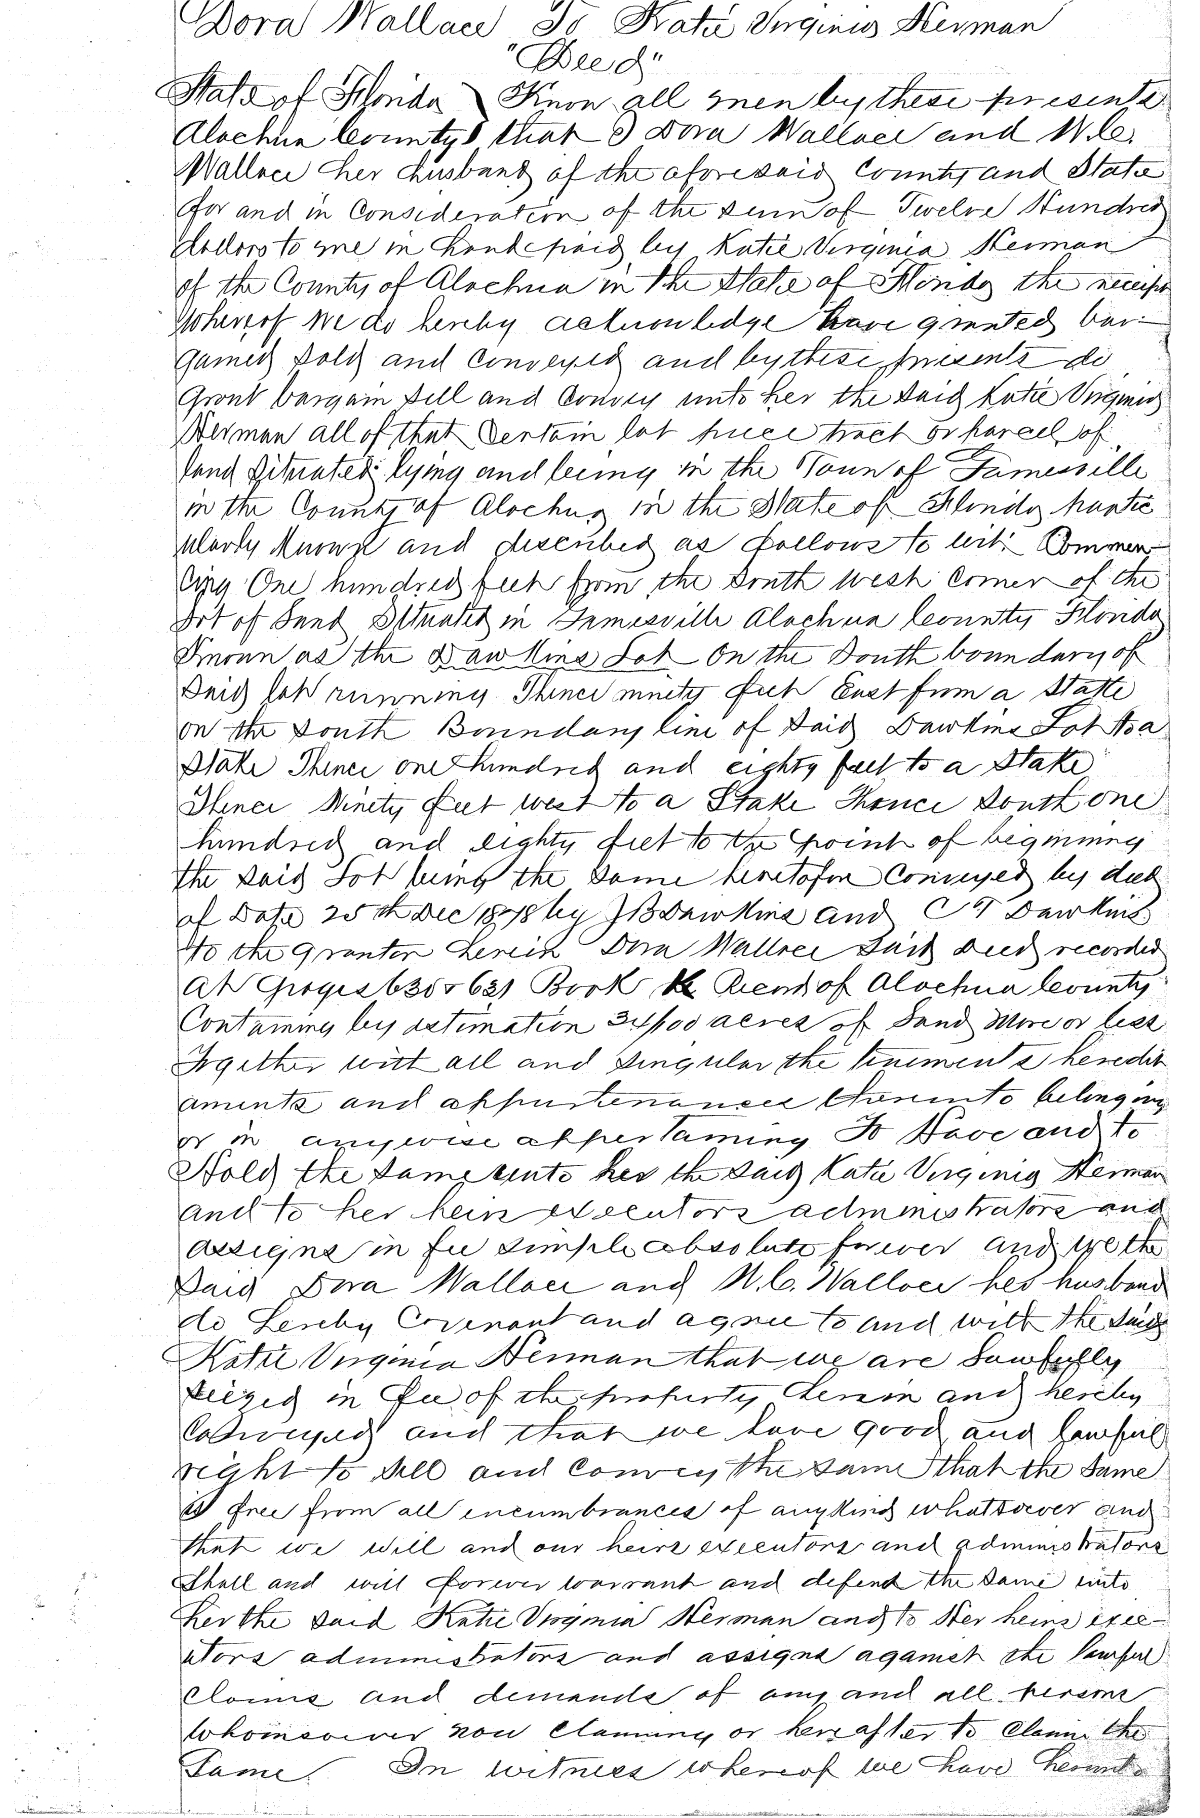 Dora Wallace To Katie Virginia Herman
"Deed"
State of Florida } Know all men by these presents
Alachua County } that I Dora Wallace and W.C.
Wallace her husband of the aforesaid County and State
for and in Consideration of the sum of Twelve Hundred
dollars to me in hand paid by Katie Virginia Herman
of the County of Alachua in the State of Florida the receipt
whereof we do hereby acknowledge have granted bar-
gained sold and conveyed and by these presents do
grant bargain sell and convey unto her the said Katie Virginia
Herman all of that Certain lot piece tract or parcel of
land situated lying and being in the Town of Gainesville
in the County of Alachua in the State of Florida partic
ularly known and described as follows to wit: Commen-
cing One hundred feet from the South west Corner of the
Lot of Land Situated in Gainesville Alachua County Florida
Known as the Dawkins Lot On the South boundary of
Said lot running Thence ninety feet East from a Stake
on the South Boundary line of Said Dawkins Lot to a
Stake Thence one hundred and eighty feet to a Stake
Thence Ninety feet west to a Stake Thence South one
hundred and eighty feet to the point of beginning
the said Lot being the same heretofore Conveyed by deed
of Date 25th Dec 1878 by J B Dawkins and C T Dawkins
to the grantor herein Dora Wallace said deed recorded
At Pages 630 & 631 Book K Record of Alachua County
Containing by estimation 34/100 acres of Land More or less
Together with all and singular the tenements heredit
aments and appurtenances thereunto belonging
or in anywise appertaining To Have and to
Hold the same unto her the said Katie Virginia Herman
and to her heirs executors administrators and
assigns in fee simple absolute forever And we the
Said Dora Wallace and W.C. Wallace her husband
do hereby Covenant and agree to and with the said
Katie Virginia Herman that we are Lawfully
seized in fee of the property herein and hereby
Conveyed and that we have good and lawful
right to sell and convey the same that the Same
is free from all encumbrances of any kind whatsoever and
that we will and our heirs executors and administrators
Shall and will forever warrant and defend the same unto
her the said Katie Virginia Herman and to Her heirs exec-
utors administrators and assigns against the lawful
claims and demands of any and all persons
whomsoever now claiming or hereafter to claim the
Same. In witness whereof we have hereunto